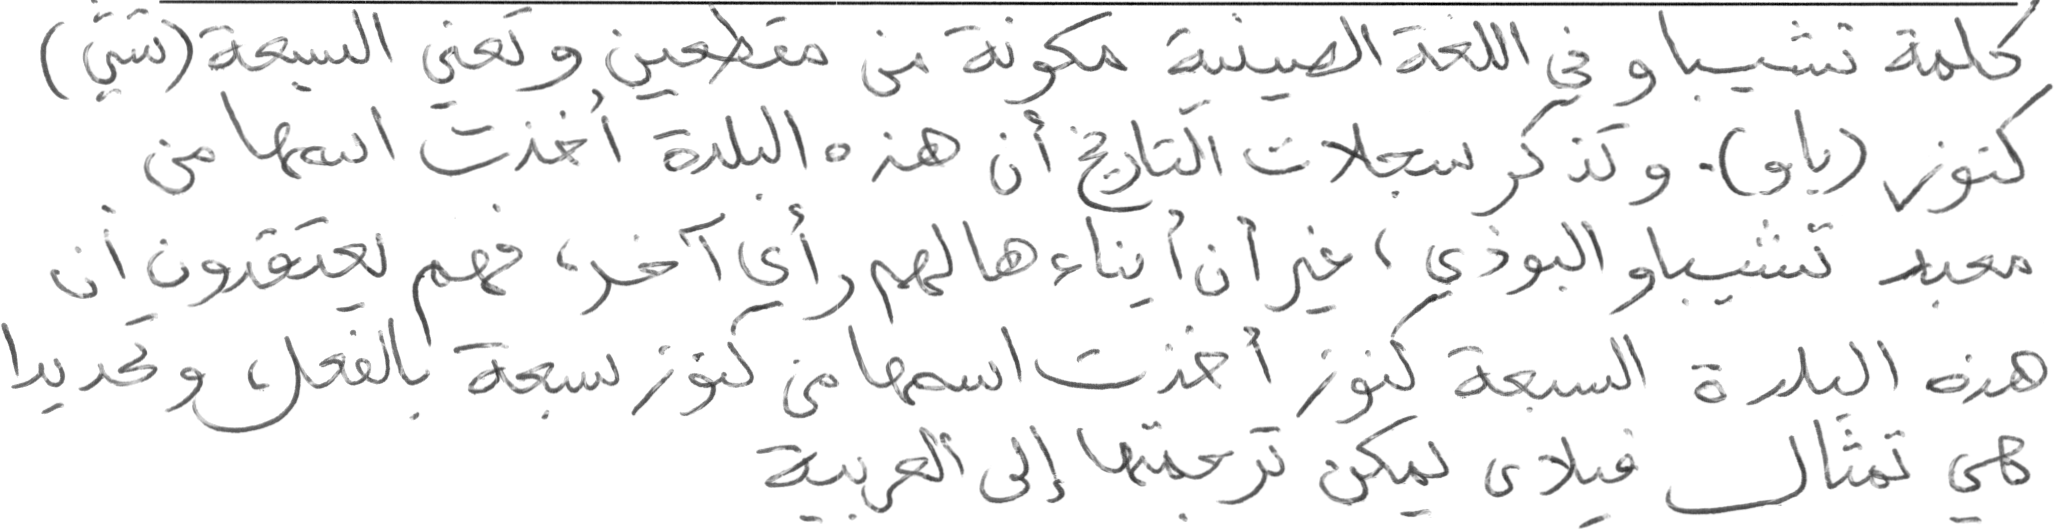 كلمة تشيباو في اللغة الصينية مكونة من مقطعين وتعني السبعة (تشي)
كنوز (باو). وتذكر سجلات التاريخ أن هذه البلدة أخذت اسمها من
معبد تشيباو البوذي، غير أن أبناءها لهم رأي آخر، فهم يعتقدون أن
هذه البلدة السبعة كنوز أخذت اسمها من كنوز سبعة بالفعل، وتحديدا
هي تمثال فيلادى يمكن ترجمتها إلى العربية